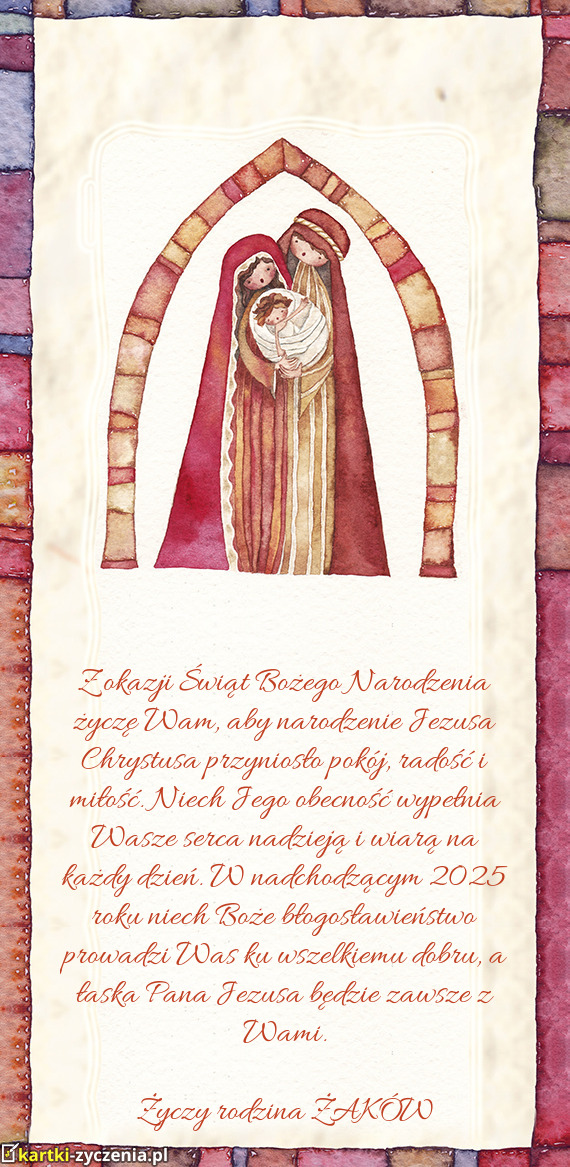 Z okazji Świąt Bożego Narodzenia
życzę Wam, aby narodzenie Jezusa
Chrystusa przyniosło pokój, radość i
miłość. Niech Jego obecność wypełnia
Wasze serca nadzieją i wiarą na
każdy dzień. W nadchodzącym 2025
roku niech Boże błogosławieństwo
prowadzi Was ku wszelkiemu dobru, a
łaska Pana Jezusa będzie zawsze z
Wami.
Życzy rodzina ŻAKÓW
kartki-zyczenia.pl